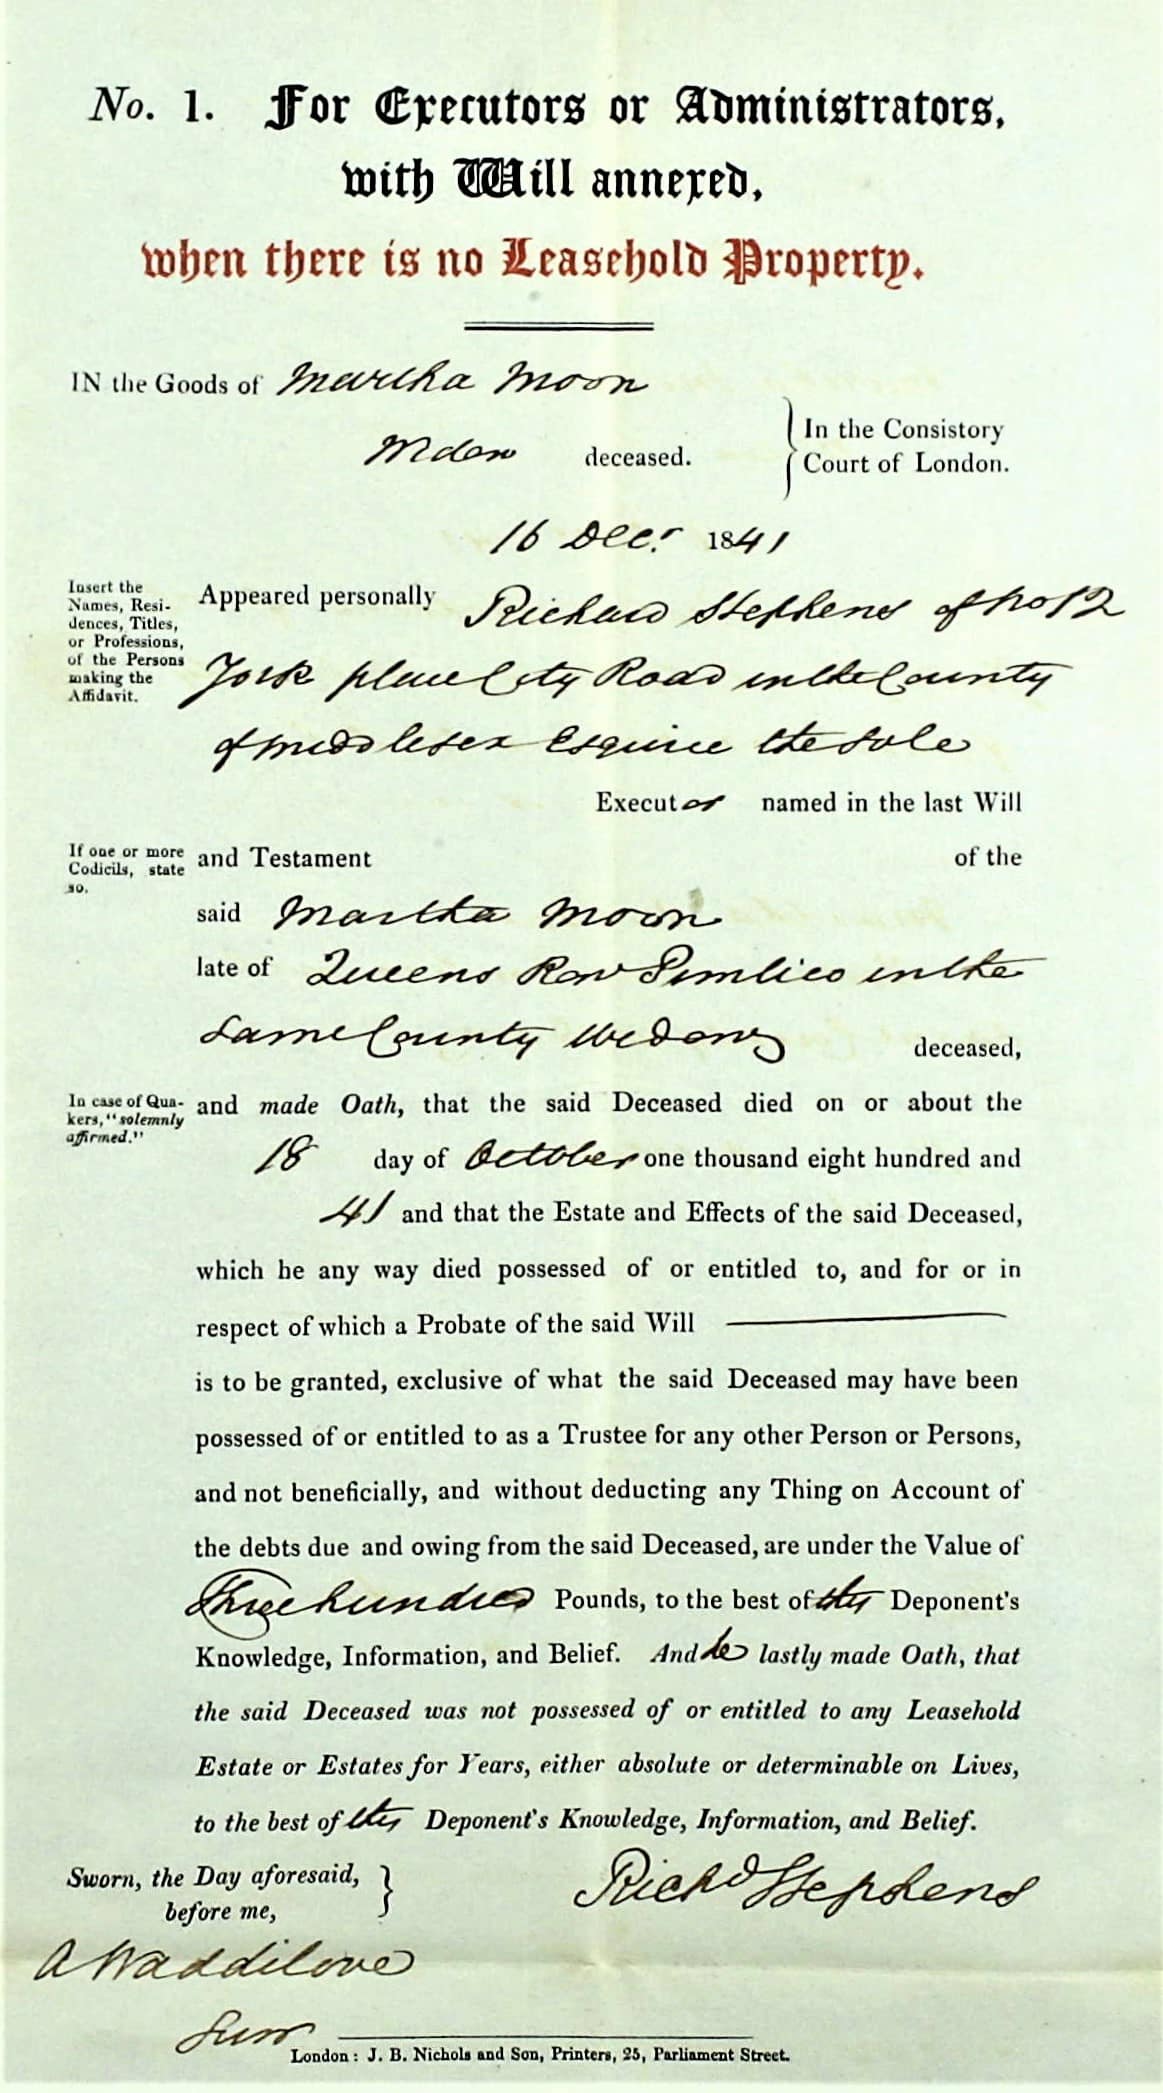 No. 1. For Executors or Administrators,
with Will annexed,
when there is no Leasehold Property.
IN the Goods of Martha Moon
Widow deceased.
In the Consistory
Court of London.
16 Decr. 1841
Insert the
Names, Resi-
dences, Titles,
or Professions,
of the Persons
making the
Affidavit.
Appeared personally Richard Stephens of No 12
York place City Road in the County
of Middlesex Esquire the sole
Executor named in the last Will
If one or more
Codicils, state
so.
and Testament of the
said Martha Moon
late of Queens Row Pimlico in the
same County Widow deceased,
In case of Qua-
kers, "solemnly
affirmed."
and made Oath, that the said Deceased died on or about the
18 day of October one thousand eight hundred and
41 and that the Estate and Effects of the said Deceased,
which he any way died possessed of or entitled to, and for or in
respect of which a Probate of the said Will
is to be granted, exclusive of what the said Deceased may have been
possessed of or entitled to as a Trustee for any other Person or Persons,
and not beneficially, and without deducting any Thing on Account of
the debts due and owing from the said Deceased, are under the Value of
Three hundred Pounds, to the best of this Deponent's
Knowledge, Information, and Belief. And he lastly made Oath, that
the said Deceased was not possessed of or entitled to any Leasehold
Estate or Estates for Years, either absolute or determinable on Lives,
to the best of this Deponent's Knowledge, Information, and Belief.
Sworn, the Day aforesaid,
before me,
Richd Stephens
A Waddilove
Surr
London: J. B. Nichols and Son, Printers, 25, Parliament Street.